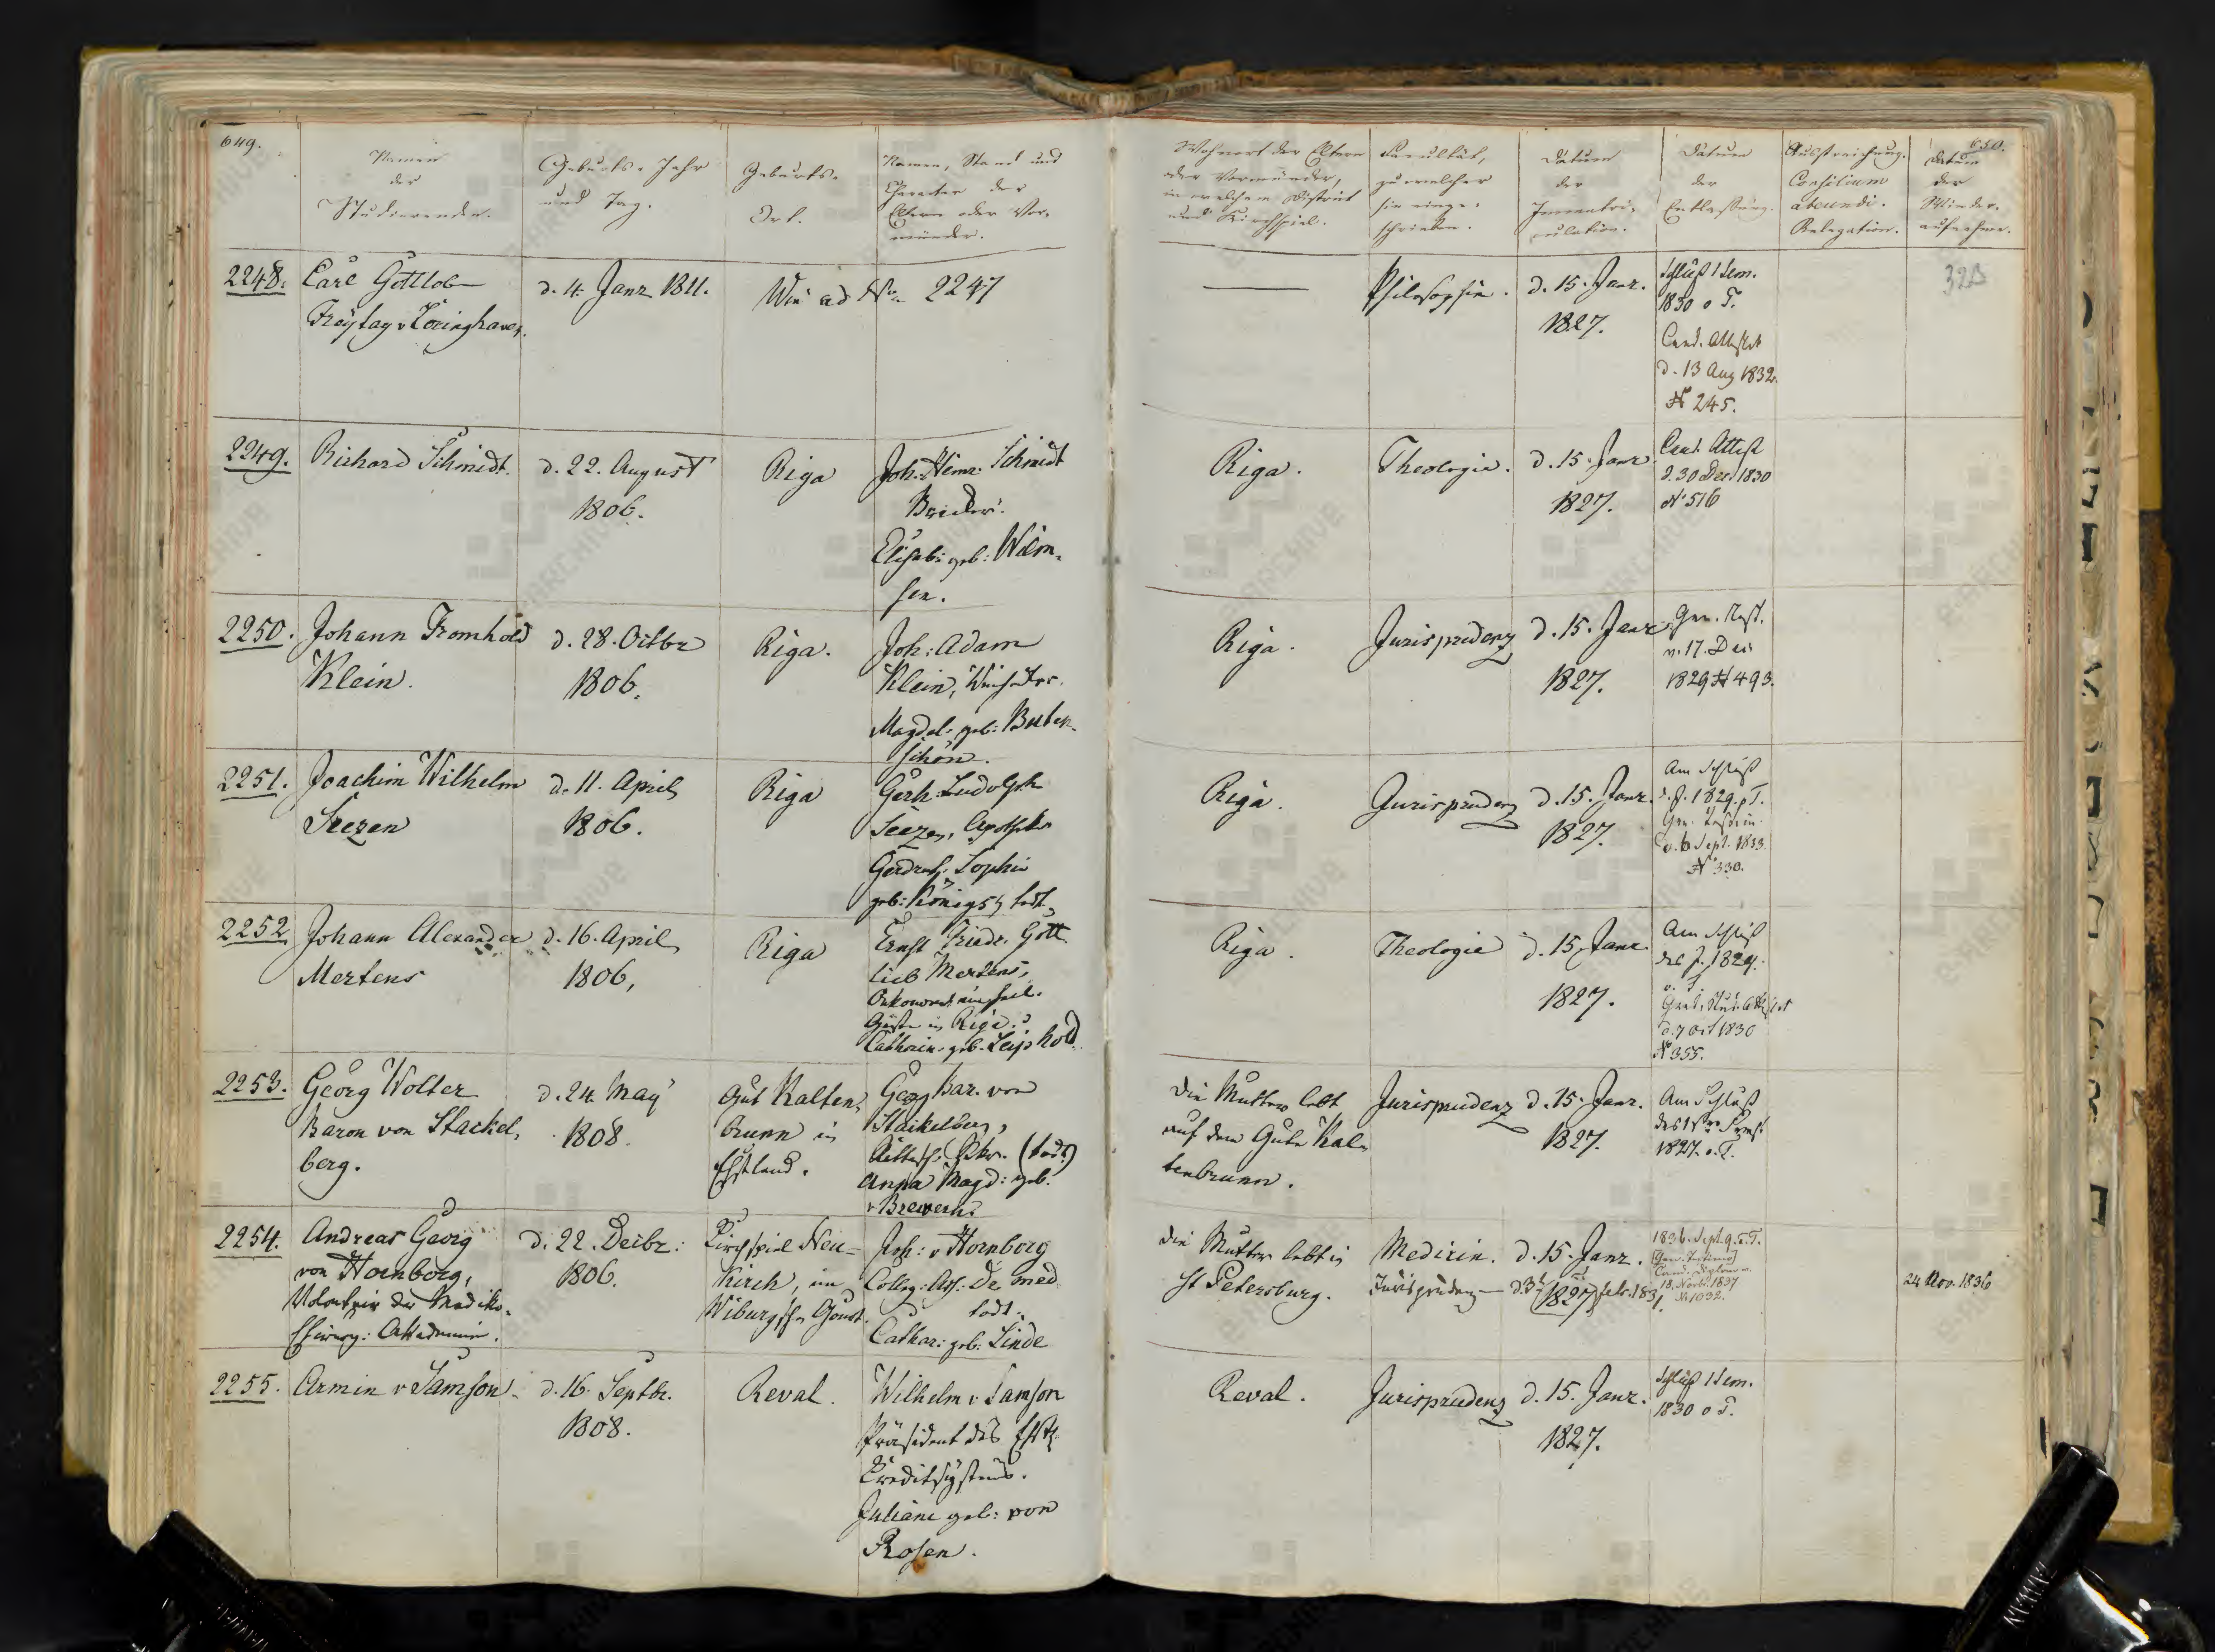 649.
Namen
der
Studierenden.
Geburts-Jahr
und Tag.
Geburts-
Ort.
Namen, Stand und
Character der
Eltern oder Vor-
münder.
Wohnort der Eltern
oder Vormünder,
in welchem District
und Kirchspiel.
Facultät,
zu welcher
sie einge-
schrieben.
Datum
der
Immatri-
culation.
Datum
der
Entlassung.
Ausstreichung.
Consilium
abeundi.
Relegation.
650.
Datum
der
Wieder-
aufnahme.
2248.
Carl Gottlob
Freytag v Loringhaven.
d. 4. Janr 1811.
Wie ad No. 2247
Philosophie.
d. 15. Janr.
1827.
Schluß 1 Sem.
1830 o T.
Cand. Attestat
d. 13 Aug 1832.
№ 245.
2249.
Richard Schmidt.
d. 22. August
1806.
Riga
Joh: Heinr. Schmidt
Elisab: geb:
sen.
Riga.
Theologie.
d. 15. Janr.
1827.
Cand. Attest
d. 30 Dec. 1830
№ 516
2250.
Johann Fromhold
Klein.
d. 28. Octbr
1806.
Riga.
Joh: Adam
Klein,
Magdal: geb: Buten-
schön.
Riga.
Jurisprudenz
d. 15. Janr.
1827.
v. 17. Dec
1829 № 493.
2251.
Joachim Wilhelm
Seezen
d. 11. April
1806.
Riga
Gerh: Ludolph
Seezen, Apotheker
Gerdruth Sophie
geb: Königs, todt.
Riga.
Jurisprudenz
d. 15. Janr.
1827.
Am Schluß
d. J. 1829. o T.
v. 6 Sept. 1833.
№ 330.
2252
Johann Alexander
Mertens
d. 16. April
1806,
Riga
Ernst Friedr. Gott-
lieb Mertens,
in Riga.
Catharin: geb. Leiphold.
Riga.
Theologie
d. 15. Janr.
1827.
Am Schluß
des J. 1829.
o. T.
Grad. Stud. Attestat
d. 7 Oct 1830
№ 355.
2253.
Georg Wolter
Baron von Stackel-
berg.
d. 24. May
1808.
Gut Kalten-
brunn in
Ehstland.
Georg Bar. von
Stackelberg,
(todt)
Anna Magd: geb.
v Brevern.
Die Mutter lebt
auf dem Gute Kal-
tenbrunn.
Jurisprudenz
d. 15. Janr.
1827.
Am Schluß
des 1sten Sem.
1827. o. T.
2254.
Andreas Georg
von Hornborg,
Volontair der Mediko-
Chirurg: Akademie.
d. 22. Decbr.
1806.
Kirchspiel Neu-
kirch, im
Wiburgschen Gouvt.
Joh: v Hornborg
Colleg: Ass: Dr med.
todt.
Cathar: geb: Linde
Die Mutter lebt in
St Petersburg.
Medicin.
Jurisprudenz
d. 15. Janr.
1827.
Febr. 1831.
1836. Sept. 9. o. T.
Cand. Diplom v.
18. Novbr. 1837
№ 1032.
24 Nov. 1836
2255.
Armin v Samson
d. 16. Septbr.
1808.
Reval.
Wilhelm v Samson
Präsident des Ehstl.
Creditsystems.
Juliane geb: von
Rosen.
Reval.
Jurisprudenz
d. 15. Janr.
1827.
Schluß 1 Sem.
1830 o T.